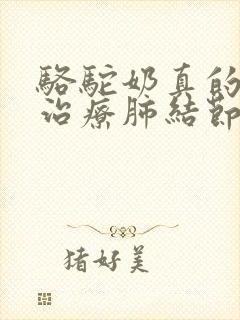 駱駝奶真的
治療肺結節
猪好美